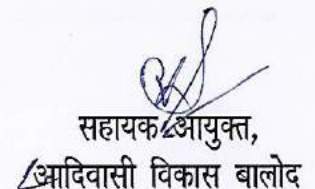 सहायक आयुक्त,
आदिवासी विकास बालोद